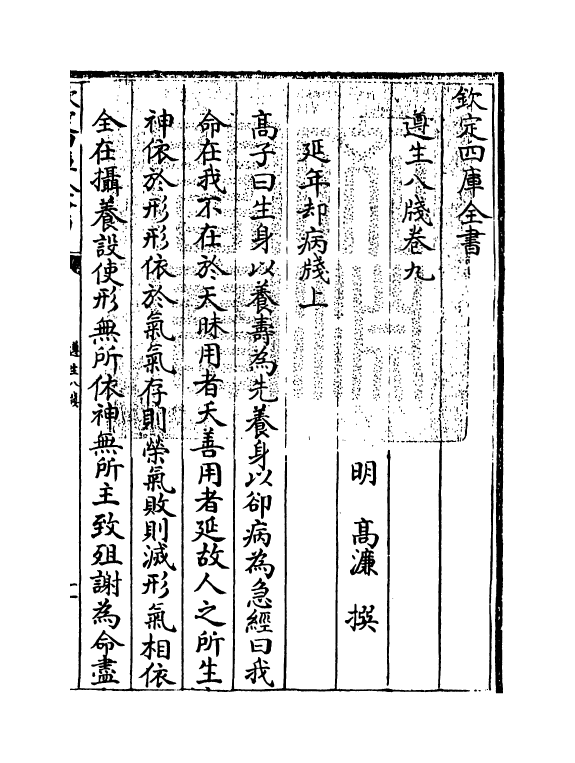 欽定四庫全書
遵生八牋卷九
明　高濂　撰
延年却病牋上
高子曰生身以養壽為先養身以卻病為急經曰我
命在我不在於天昧用者夭善用者延故人之所生
神依於形形依於氣氣存則榮氣敗則滅形氣相依
全在攝養設使形無所依神無所主致殂謝為命盡
遵生八牋